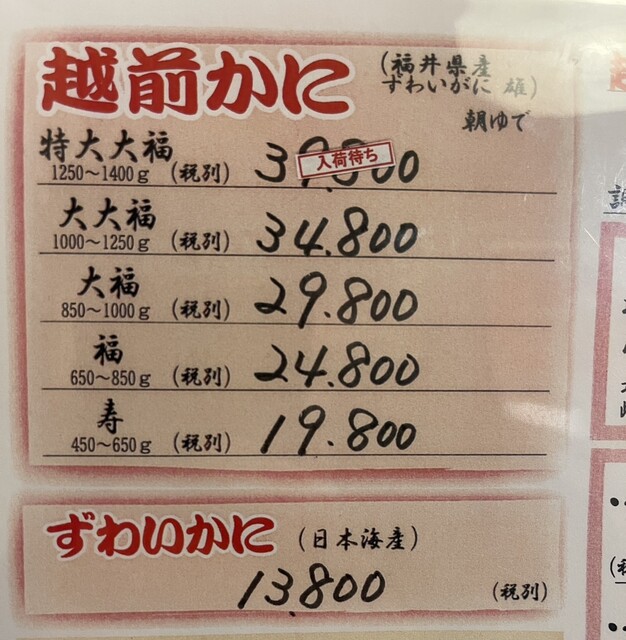 越前かに
(福井県産
ずわいがに 雄)
朝ゆで
特大大福
1250～1400g (税別)
入荷待ち
大大福
1000～1250g (税別) 34.800
大福
850～1000g (税別) 29.800
福
650～850g (税別) 24.800
寿
450～650g (税別) 19.800
ずわいかに (日本海産)
13.800 (税別)